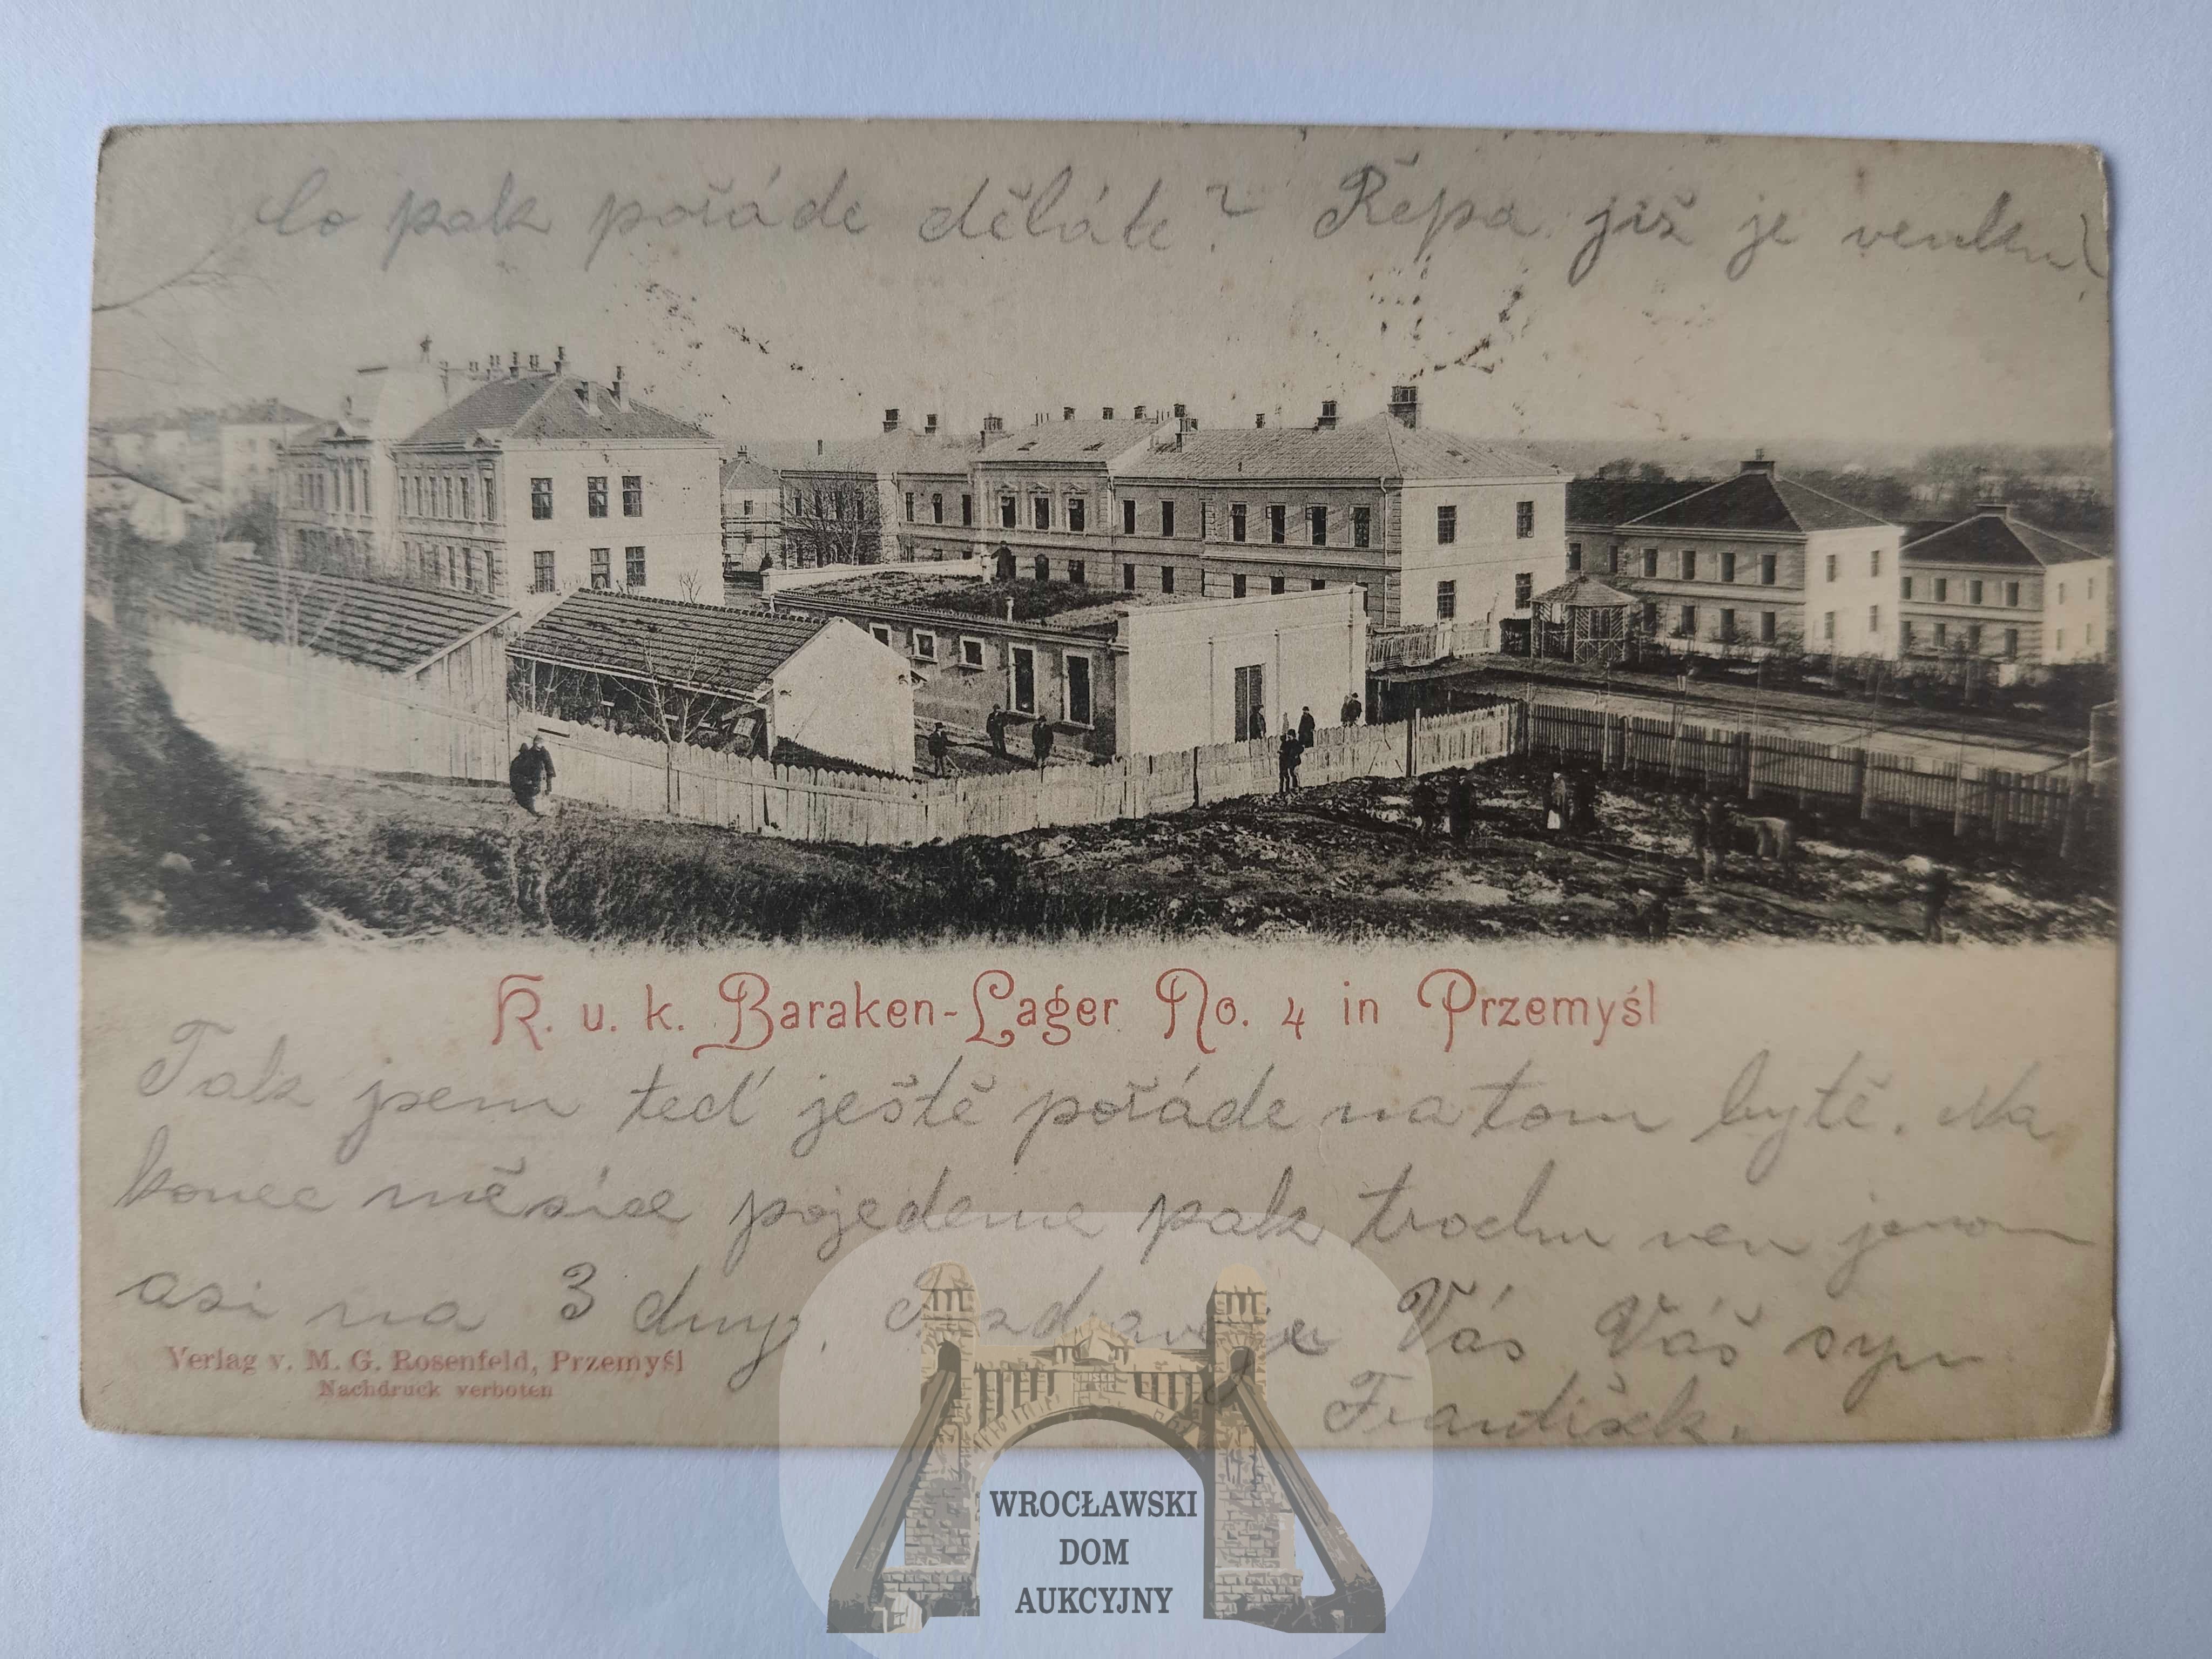 Co pak pořáde děláte? Řepa již je venku
K. u. k. Baraken-Lager No. 4 in Przemyśl
Tak jsem teď ještě pořáde na tom bytě. Na
konec měsíce pojedeme pak trochu ven jenom
asi na 3 dny. Pozdravuje Vás Váš syn
František.
Verlag v. M. G. Rosenfeld, Przemyśl
Nachdruck verboten
WROCŁAWSKI
DOM
AUKCYJNY